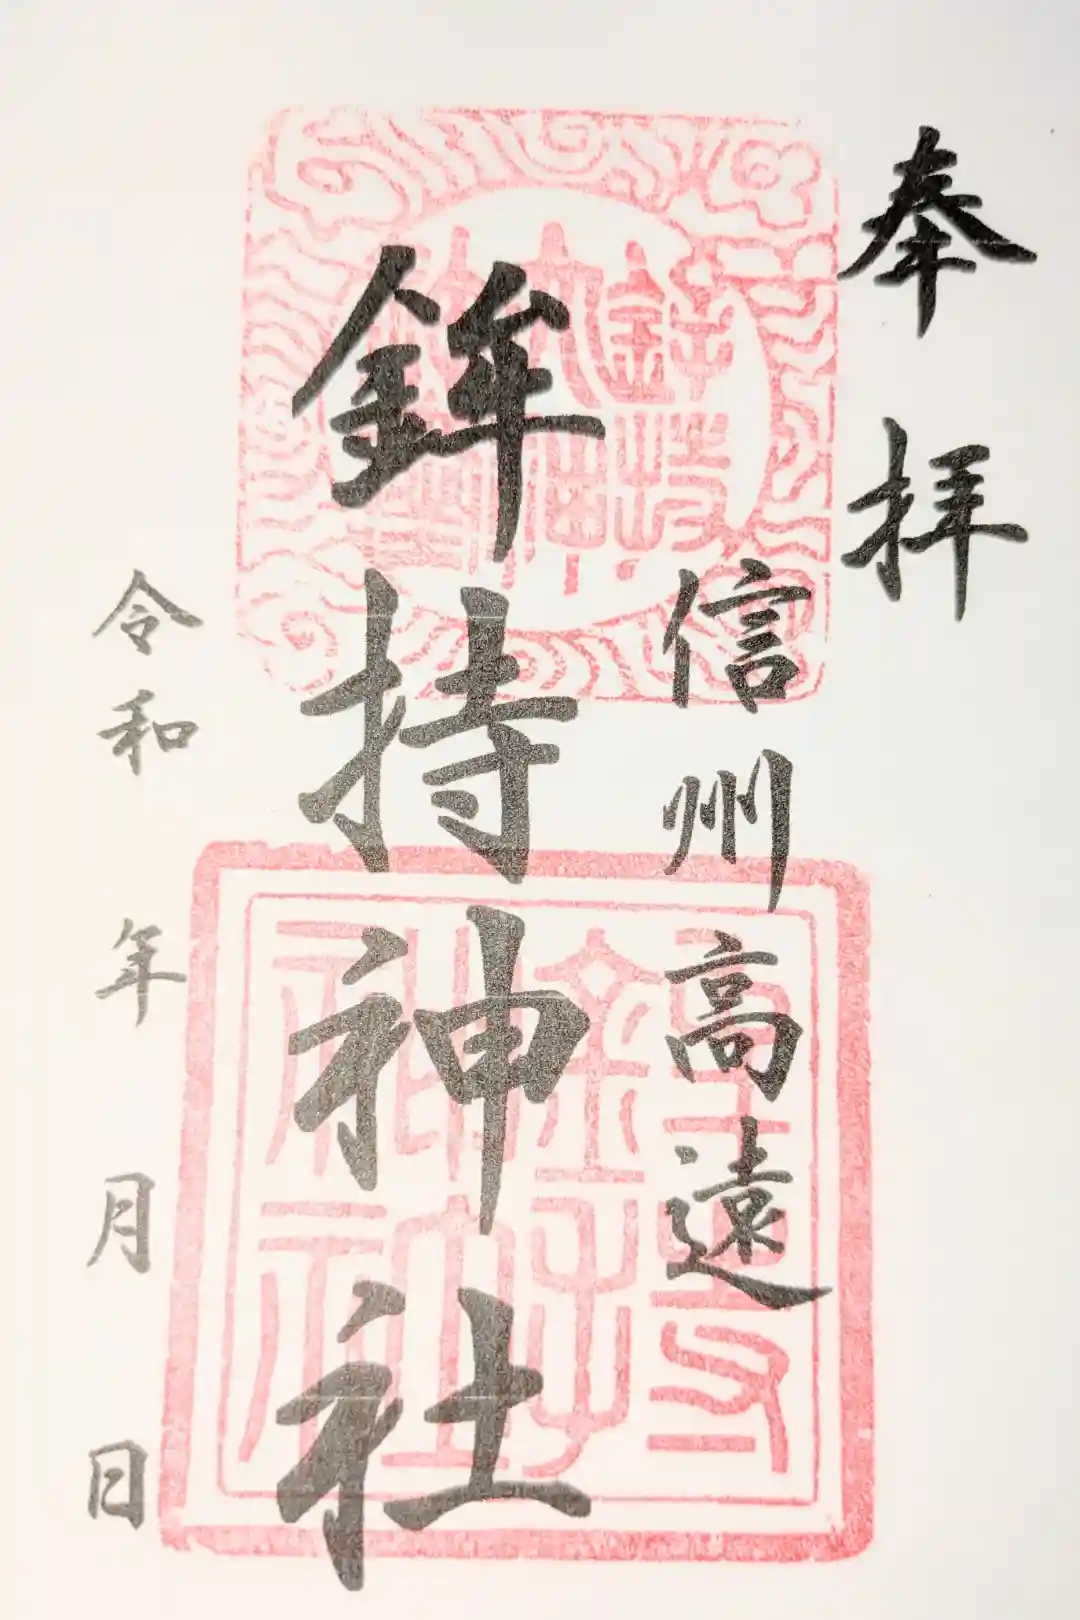 奉拝
信州高遠
鉾持神社
令和 年 月 日
鉾持神社